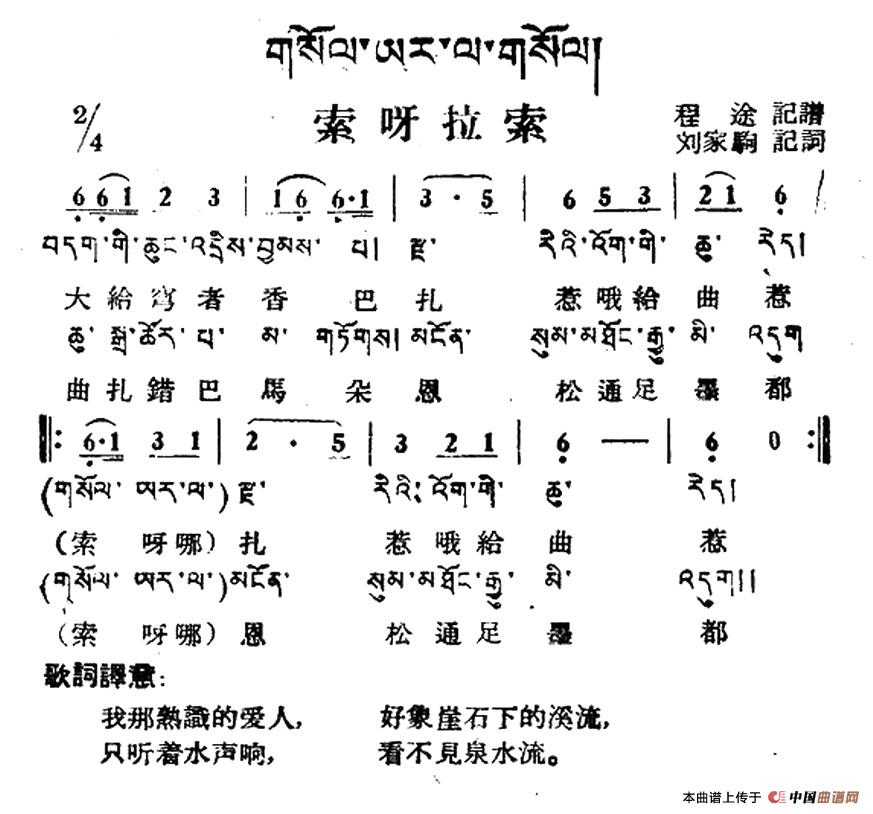 གསོལ་ཨར་ལ་གསོལ།
2/4 索呀拉索 程途 記譜
刘家駒 記詞
6 6 1 2 3 | 1 6 6·1 | 3 · 5 | 6 5 3 | 2 1 6 /
བདག་གི་ཆུང་འདྲིས་བྱམས་ པ། རྫ་ རིའི་འོག་གི་ ཆུ་ རེད།
大給窮者香 巴扎 惹哦給曲惹
ཆུ་ སྒྲ་ཚོར་ པ་ མ་ གཏོགས། མངོན་ སུམ་མཐོང་རྒྱུ་ མི་ འདུག
曲扎錯巴馬朵恩 松通足墨都
‖: 6·1 3 1 | 2 · 5 | 3 2 1 | 6 — | 6 0 :‖
(གསོལ་ ཨར་ལ་) རྫ་ རིའི་ འོག་གི་ ཆུ་ རེད།
(索 呀哪) 扎 惹哦給 曲 惹
(གསོལ་ ཨར་ལ་) མངོན་ སུམ་མཐོང་རྒྱུ་ མི་ འདུག།།
(索 呀哪) 恩 松通足 墨 都
歌詞譯意:
我那熟識的爱人, 好象崖石下的溪流,
只听着水声响, 看不見泉水流。
本曲谱上传于 中国曲谱网